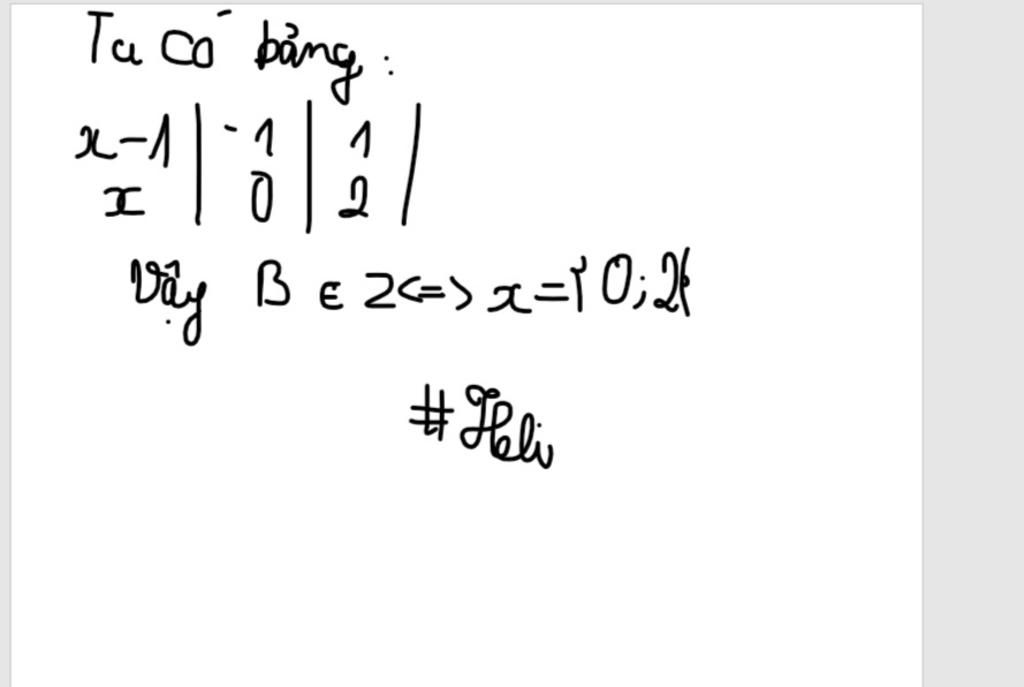 Ta có bảng:
x-1 | -1 | 1 |
x | 0 | 2 |
Vậy B ∈ Z <=> x = { 0; 2 }